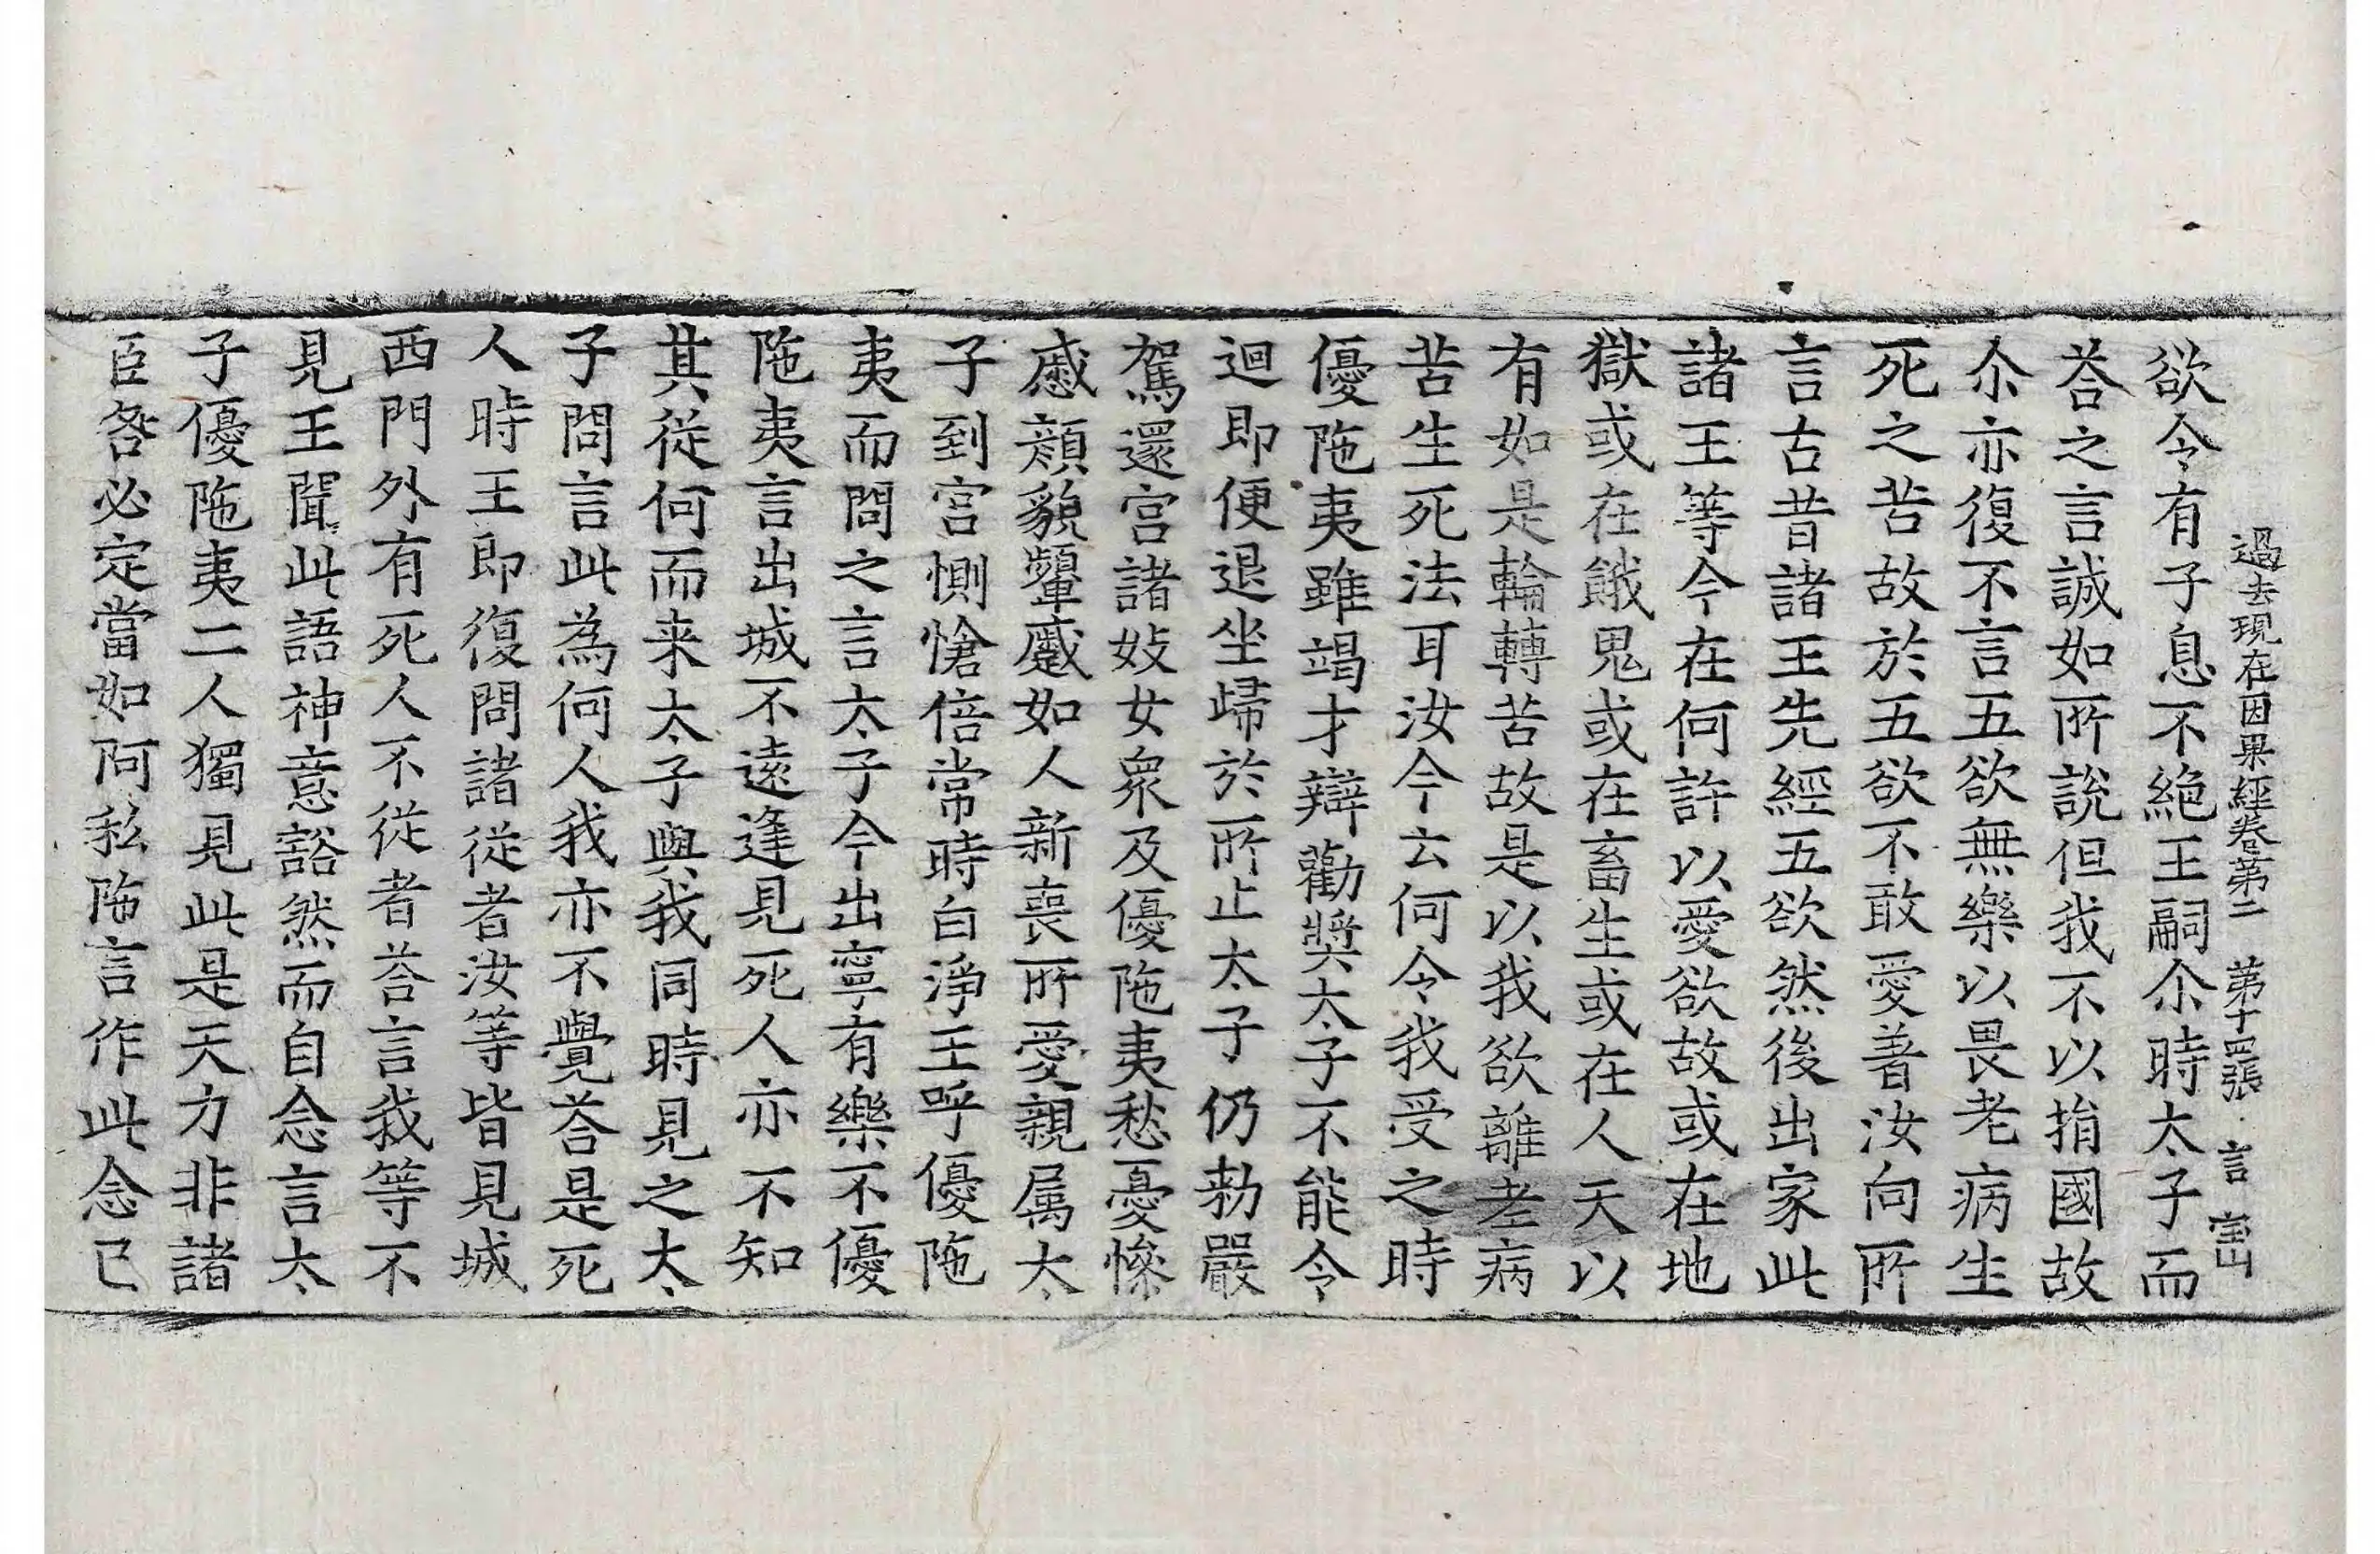 過去現在因果經卷第二 第十四張 言 宝山
欲令有子息不絶王嗣尒時太子而
荅之言誠如所說但我不以捐國故
尒亦復不言五欲無樂以畏老病生
死之苦故於五欲不敢愛著汝向所
言古昔諸王先經五欲然後出家此
諸王等今在何許以愛欲故或在地
獄或在餓鬼或在畜生或在人天以
有如是輪轉苦故是以我欲離老病
苦生死法耳汝今云何令我受之時
優陁夷雖竭才辯勸奬太子不能令
迴即便退坐歸於所止太子仍勑嚴
駕還宮諸妓女衆及優陁夷愁憂慘
慼顔貌顰蹙如人新喪所愛親属太
子到宮惻愴倍常時白淨王呼優陁
夷而問之言太子今出寧有樂不優
陁夷言出城不遠逢見死人亦不知
其從何而来太子與我同時見之太
子問言此為何人我亦不覺荅是死
人時王即復問諸從者汝等皆見城
西門外有死人不從者荅言我等不
見王聞此語神意豁然而自念言太
子優陁夷二人獨見此是天力非諸
臣咎必定當如阿私陁言作此念已